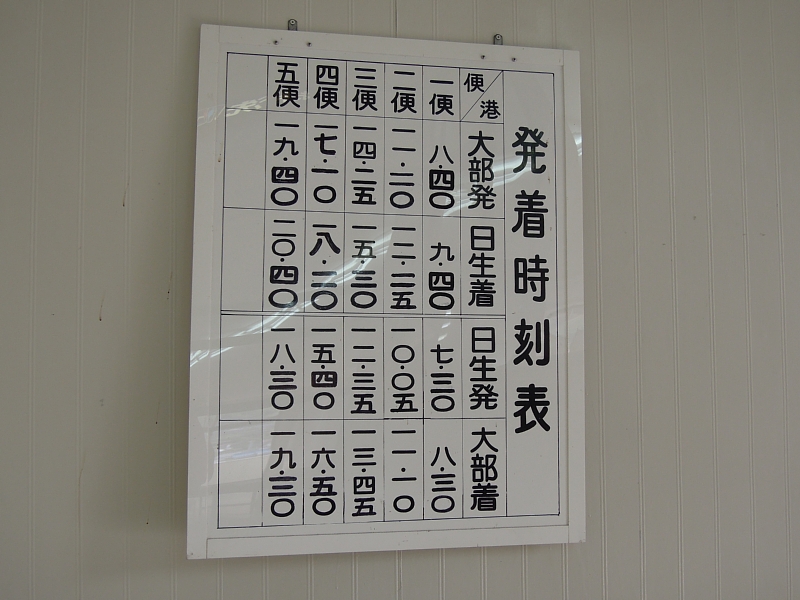 発着時刻表
便 港 大部発 日生着 日生発 大部着
一便 八・四〇 九・四〇 七・三〇 八・三〇
二便 一一・二〇 一二・二五 一〇・〇五 一一・一〇
三便 一四・二五 一五・三〇 一二・三五 一三・四五
四便 一七・一〇 一八・二〇 一五・四〇 一六・五〇
五便 一九・四〇 二〇・四〇 一八・三〇 一九・三〇